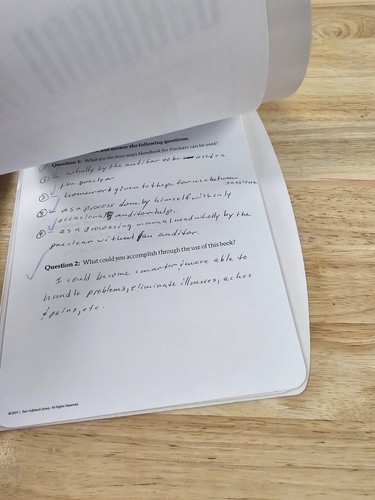 and answer the following questions.
Question 1: What are the four ways Handbook for Preclears can be used?
① wholly by the auditor to be used on
the preclear
② homework given to the pc for use between
sessions
③ as a process done by himself with only
occasional auditor help.
④ as a processing manual used wholly by the
preclear without an auditor.
Question 2: What could you accomplish through the use of this book?
I could become smarter & more able to
handle problems, eliminate illnesses, aches
& pains, etc.
© 2001 L. Ron Hubbard Library. All Rights Reserved.